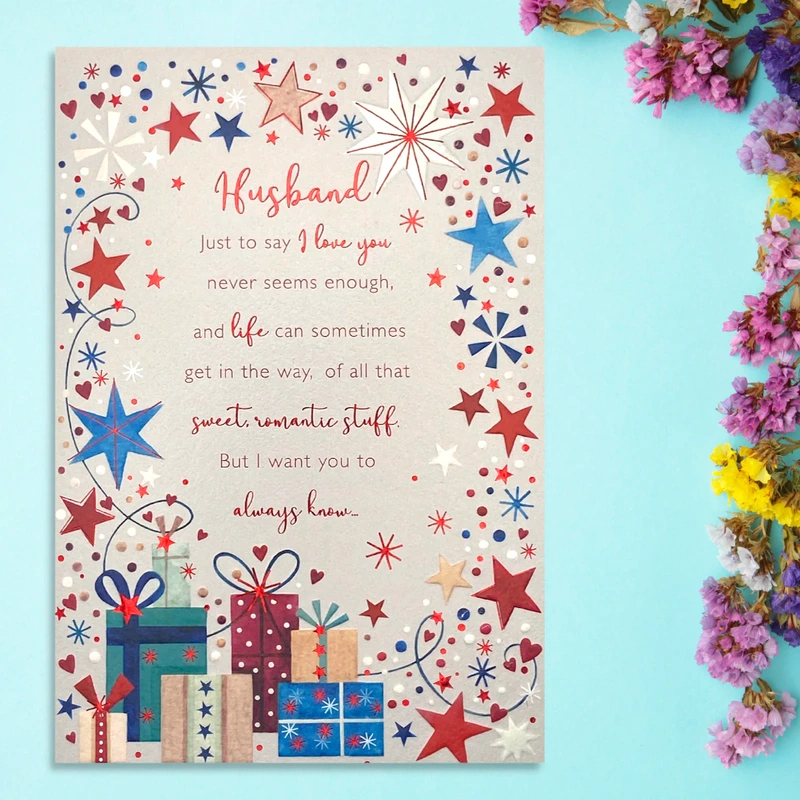 Husband
Just to say I love you
never seems enough,
and life can sometimes
get in the way, of all that
sweet, romantic stuff.
But I want you to
always know...